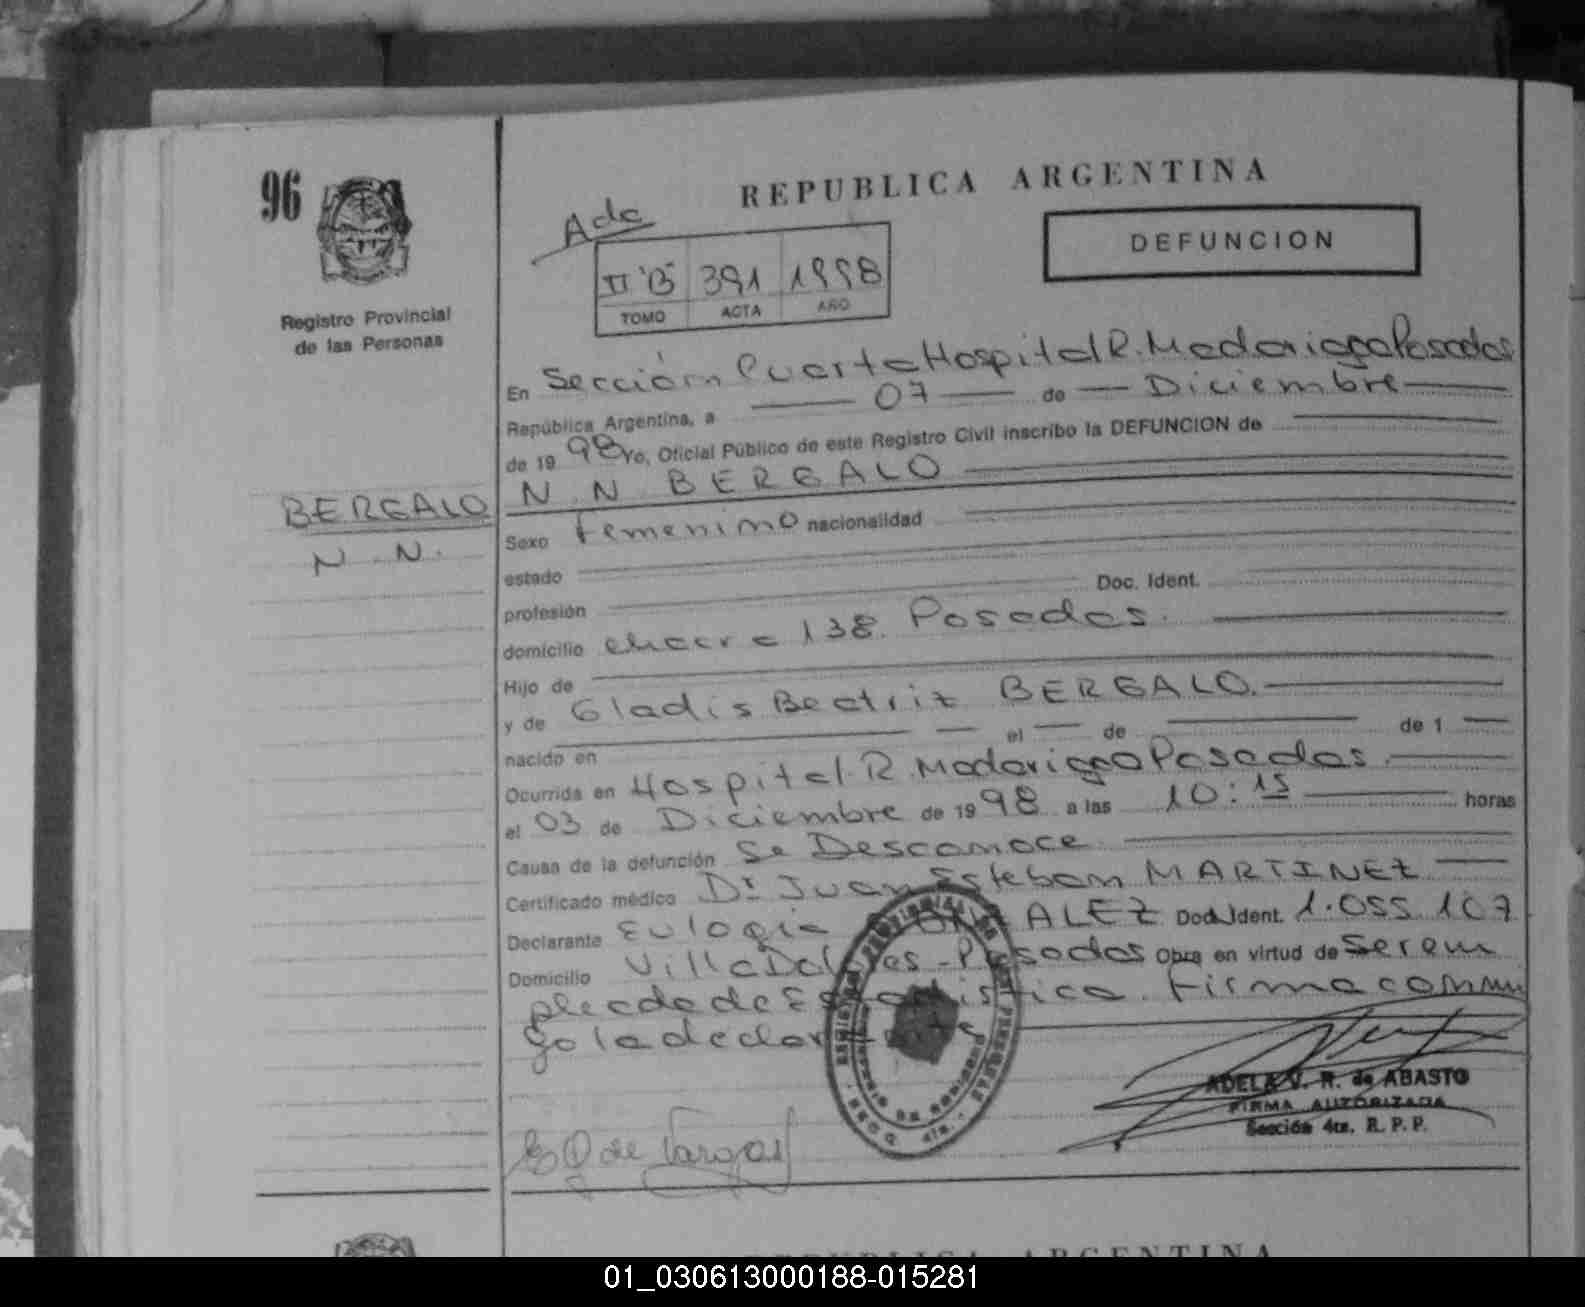 96
REPUBLICA ARGENTINA
Registro Provincial
de las Personas
Ada
DEFUNCION
II "B" 391 1998
TOMO ACTA AÑO
En Sección Cuarta Hospital R. Madariaga Posadas
República Argentina, a 07 de Diciembre
de 19 98 Yo, Oficial Público de este Registro Civil inscribo la DEFUNCION de
BERGALO
N. N.
N. N. BERGALO
Sexo femenino nacionalidad
estado
profesión Doc. Ident.
domicilio chacra 138. Posadas.
Hijo de
y de Gladis Beatriz BERGALO.
nacido en el de de 1
Ocurrida en Hospital R. Madariaga Posadas.
el 03 de Diciembre de 1998 a las 10:15 horas
Causa de la defunción Se Desconoce
Certificado médico Dr. Juan Esteban MARTINEZ
Declarante Eulogia ALEZ Doc. Ident. 1.055.107
Domicilio Villa Posadas Obra en virtud de ser em
pleada de Firma conmi
go la
ADELA V. R. de ABASTO
FIRMA AUTORIZADA
Sección 4ta. R. P. P.
de Vargas
REPUBLICA ARGENTINA
01_030613000188-015281